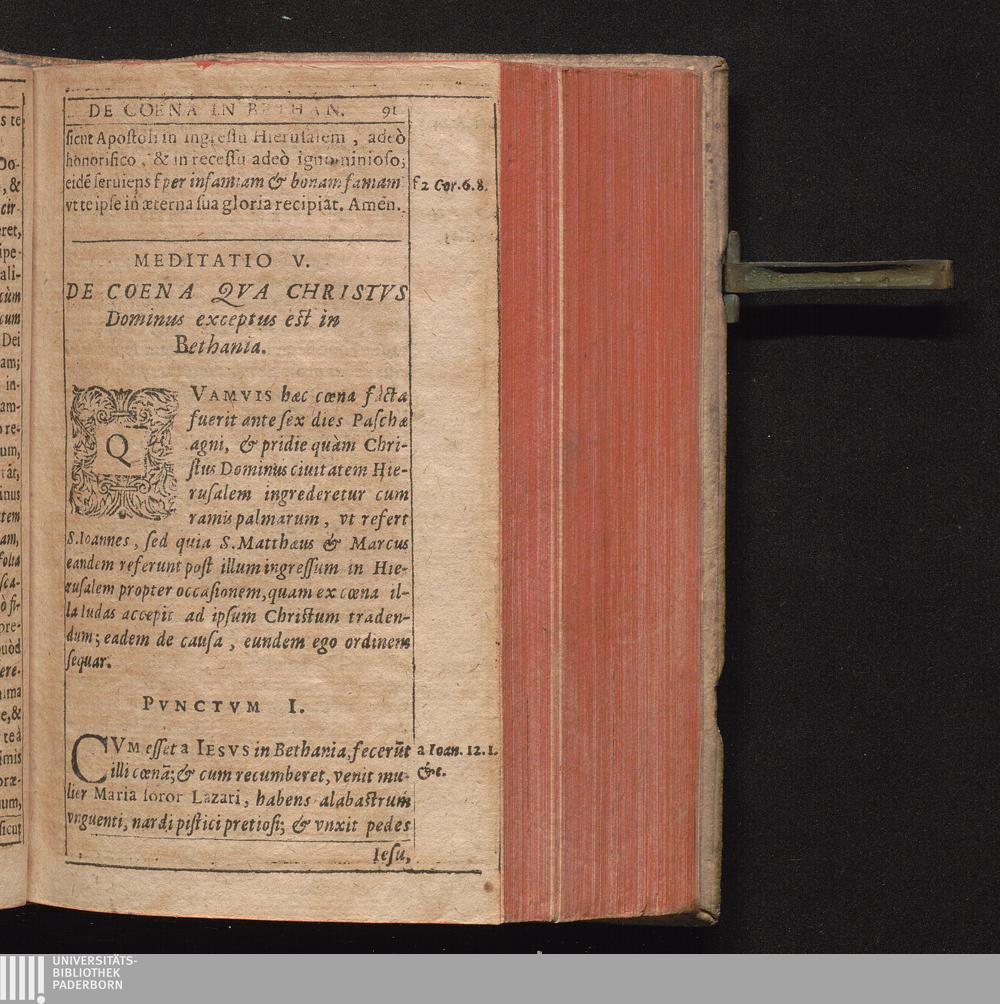 DE COENA IN BETHAN. 91
ſicut Apoſtoli in ingreſſu Hieruſalem, adeò
honorifico, & in receſſu adeò ignominioſo;
eidē ſeruiens f per infamiam & bonam famam
vt te ipſe in æterna ſua gloria recipiat. Amen.
f 2 Cor. 6. 8.
MEDITATIO V.
DE COENA QVA CHRISTVS
Dominus exceptus est in
Bethania.
QVAMVIS hæc cœna facta
fuerit ante ſex dies Paſchæ
agni, & pridie quàm Chri-
ſtus Dominus ciuitatem Hie-
ruſalem ingrederetur cum
ramis palmarum, vt refert
S. Ioannes, ſed quia S. Matthæus & Marcus
eandem referunt poſt illum ingreſſum in Hie-
ruſalem propter occaſionem, quam ex cœna il-
la Iudas accepit ad ipſum Christum traden-
dum; eadem de cauſa, eundem ego ordinem
ſequar.
PVNCTVM I.
CVM eſſet a IESVS in Bethania, fecerūt
illi cœnā; & cum recumberet, venit mu-
lier Maria ſoror Lazari, habens alabastrum
vnguenti, nardi piſtici pretioſi; & vnxit pedes
Ieſu,
a Ioan. 12. 1.
&c.
s te
Do-
, &
cir-
ret,
ipe-
ali-
cùm
cum
Dei
am;
in-
am-
o re-
um,
rāt,
inus
tem
am,
folia
ſca-
ò ſi-
pre-
uòd
ere-
ima
e, &
te à
imis
præ-
um,
ſicut
UNIVERSITÄTS-
BIBLIOTHEK
PADERBORN